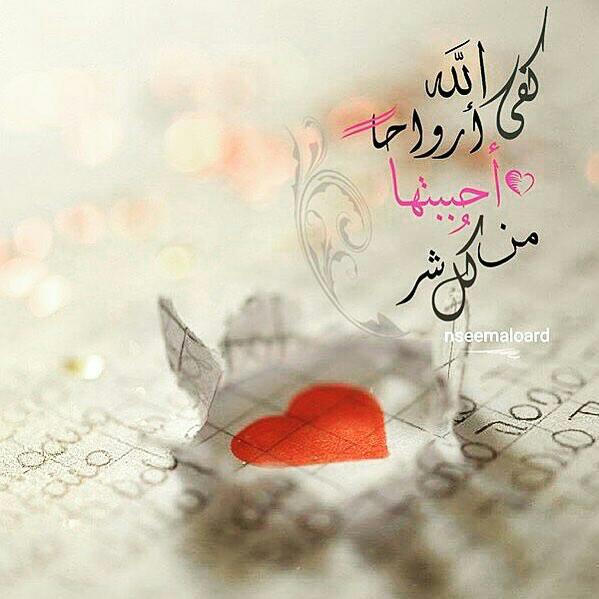 كفى اللَّه
أرواحاً
أحببتها
من كُل شر
nseemaloard